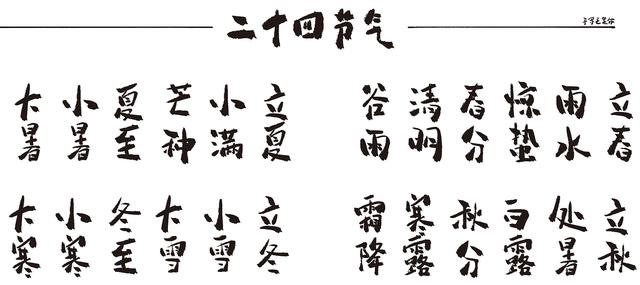 二十四节气
立春
雨水
惊蛰
春分
清明
谷雨
立夏
小满
芒种
夏至
小暑
大暑
立秋
处暑
白露
秋分
寒露
霜降
立冬
小雪
大雪
冬至
小寒
大寒